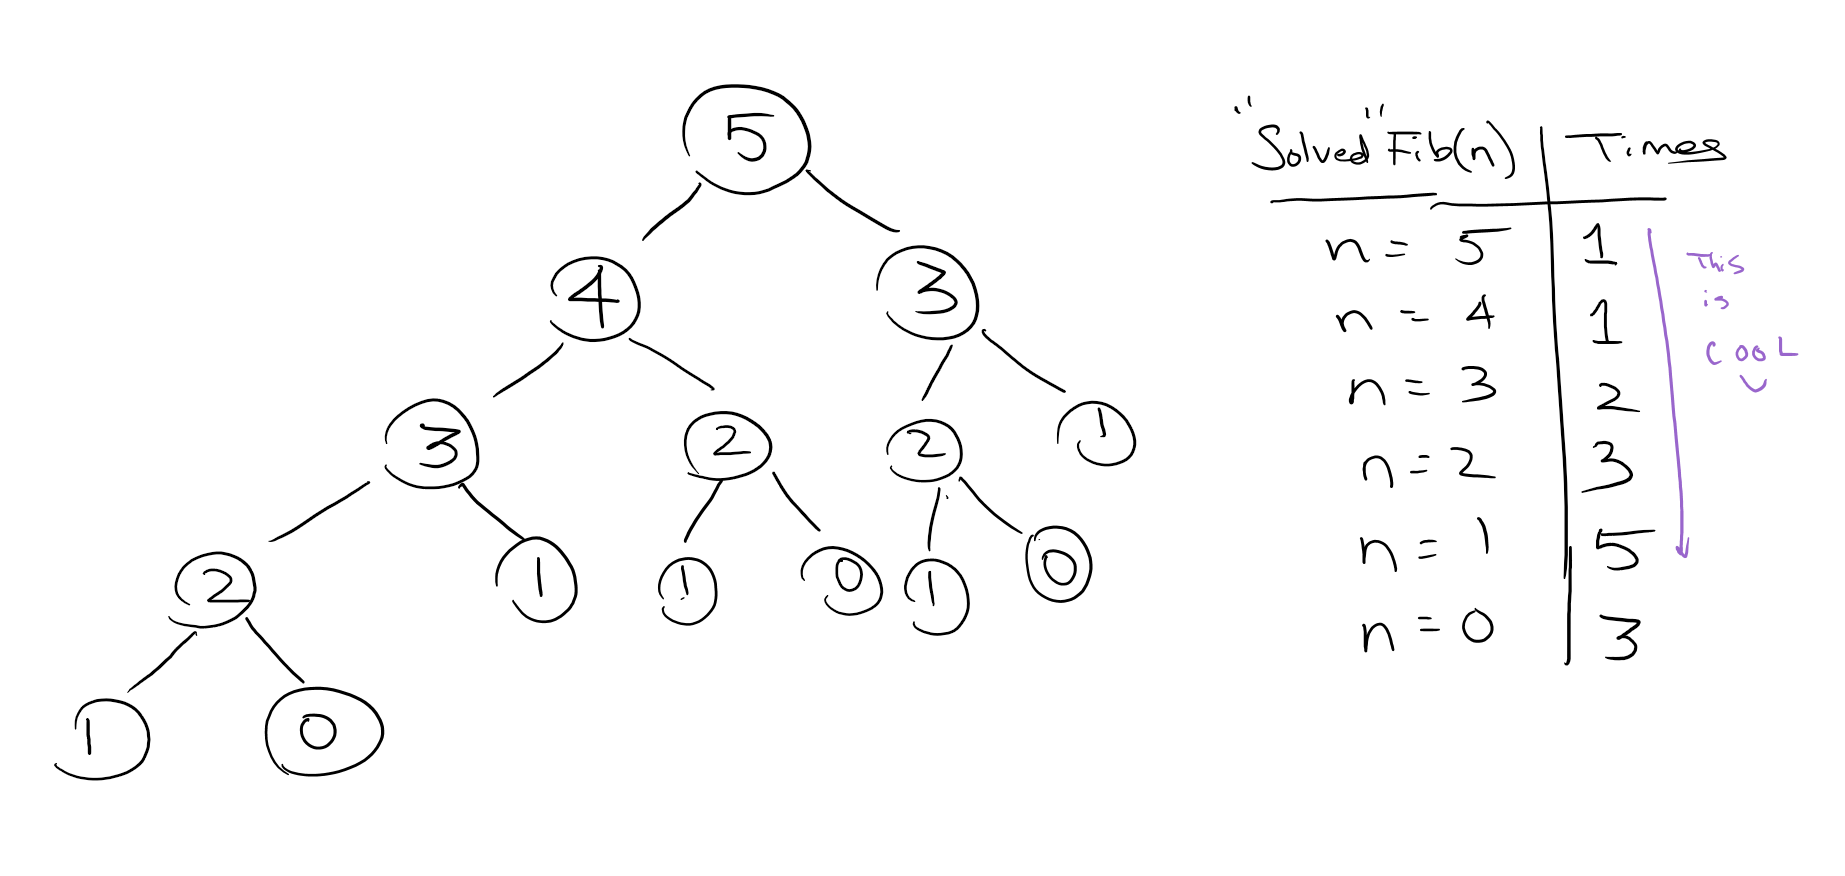 5
4 3
3 2 2 1
2 1 1 0 1 0
1 0
"Solved" Fib(n) Times
n = 5 1
n = 4 1
n = 3 2
n = 2 3
n = 1 5
n = 0 3
This
is
COOL